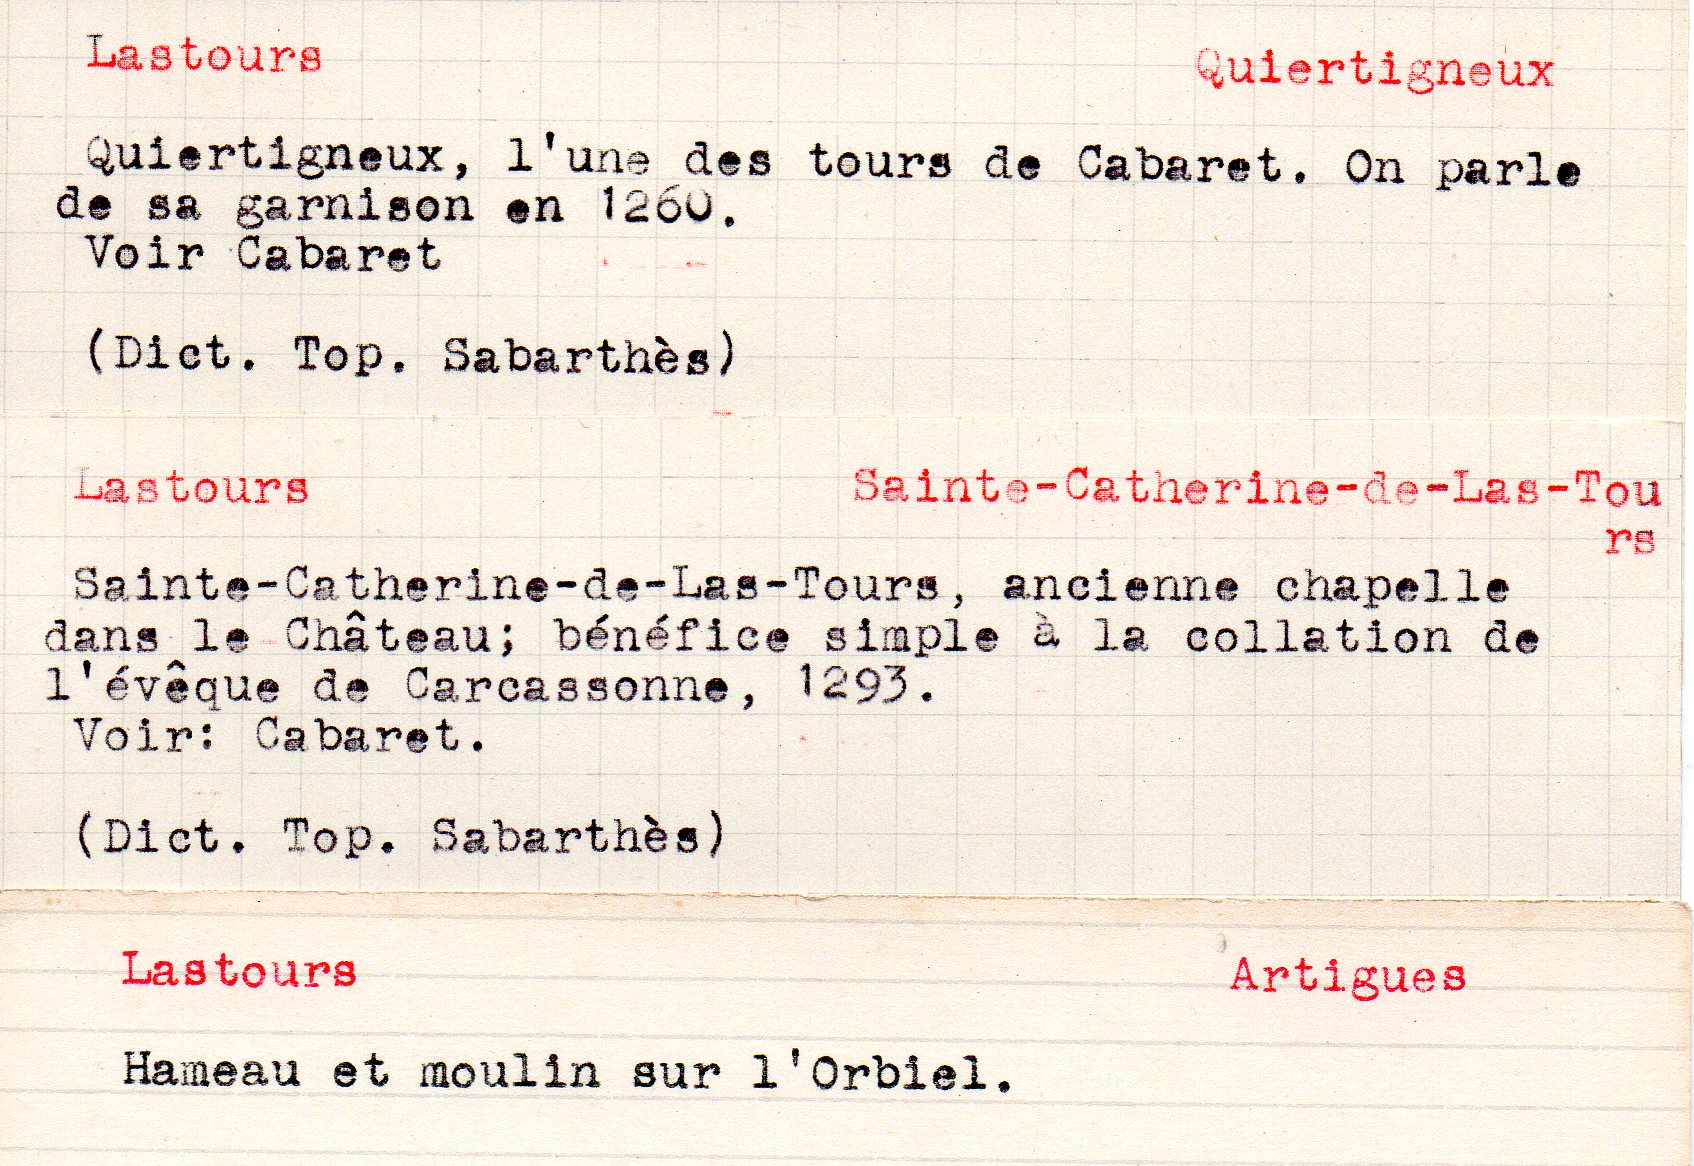 Lastours Quiertigneux
Quiertigneux, l'une des tours de Cabaret. On parle
de sa garnison en 1260.
Voir Cabaret
(Dict. Top. Sabarthès)
Lastours Sainte-Catherine-de-Las-Tou
rs
Sainte-Catherine-de-Las-Tours, ancienne chapelle
dans le Château; bénéfice simple à la collation de
l'évêque de Carcassonne, 1293.
Voir: Cabaret.
(Dict. Top. Sabarthès)
Lastours Artigues
Hameau et moulin sur l'Orbiel.